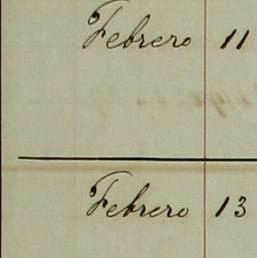 Febrero 11
Febrero 13